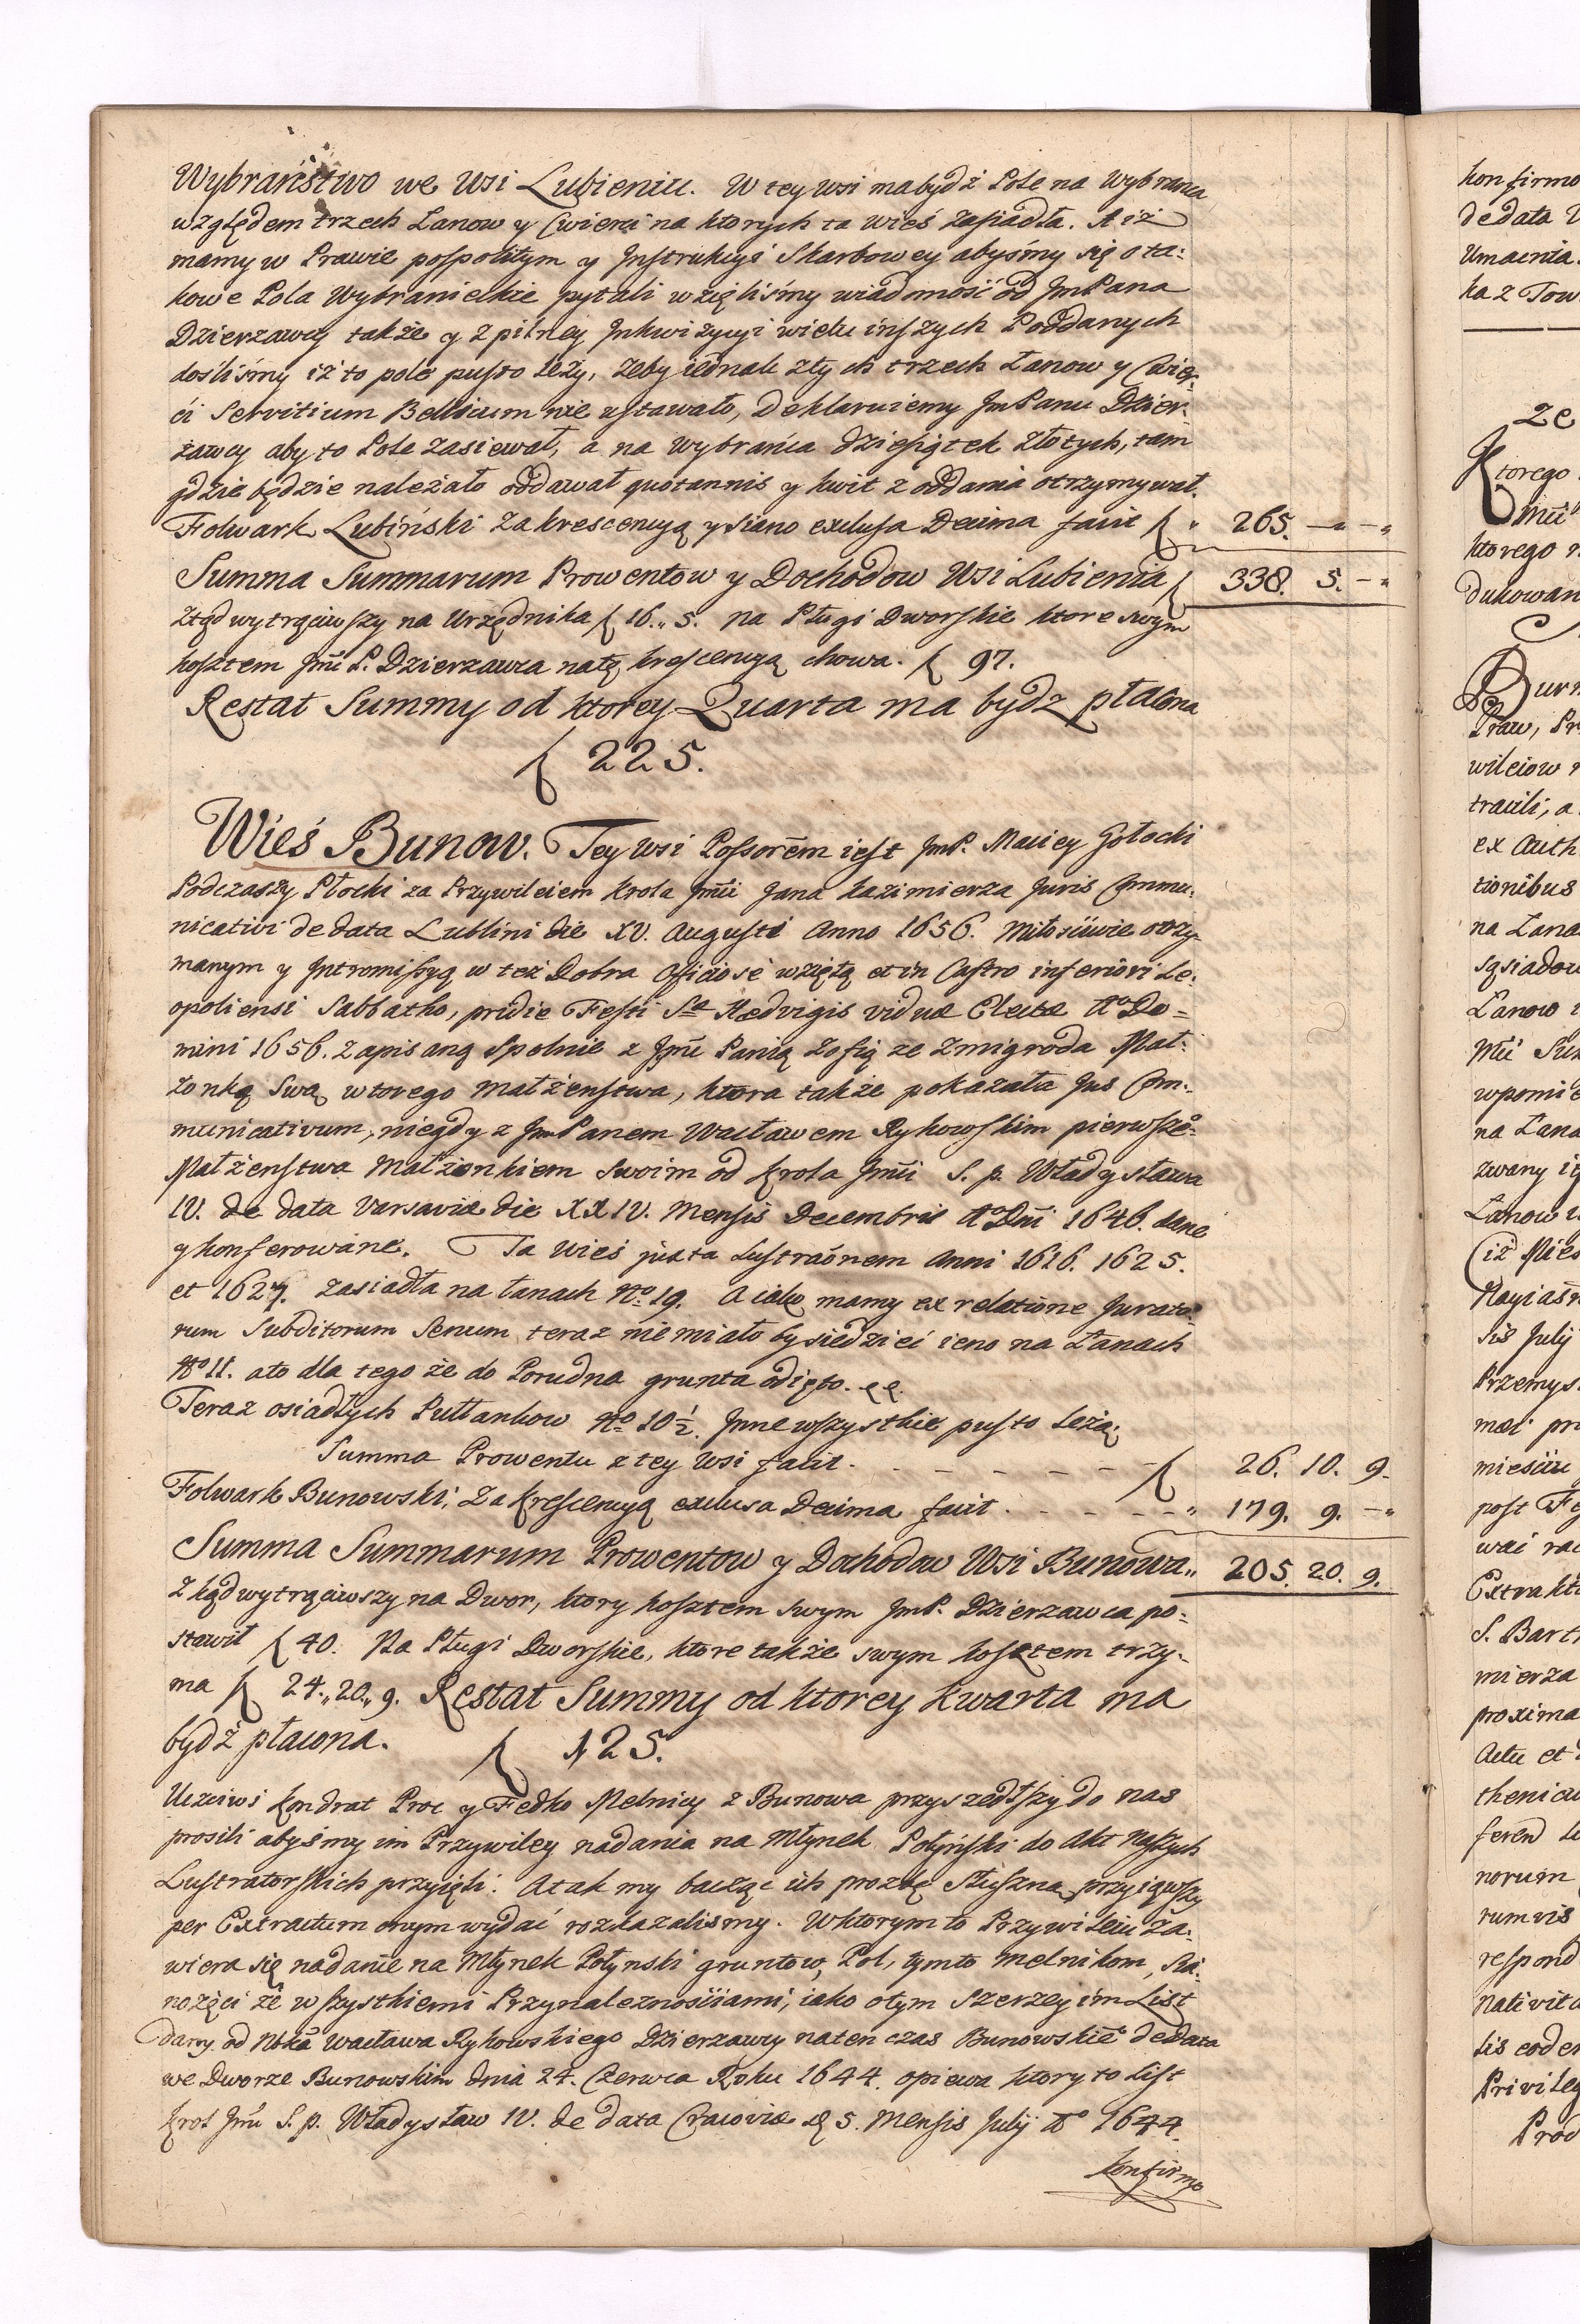 Wybraństwo we Wsi Lubieniu. W tey wsi ma bydź Pole na Wybrańca
względem trzech Lanow y Cwierci na ktorych ta wieś zasiadła. A iż
mamy w Prawie pospolitym y Instrukcyi Skarbowey abyśmy się o ta:
kowe Pola Wybranieckie pytali wzięliśmy wiadmość od JmPana
Dzierzawcy także y z pilney Inkwizycyi wielu inszych Poddanych
dośliśmy iż to pole pusto leży, żeby iednak z tych trzech Łanow y Cwier:
ci Servitium Bellicum nie ustawało, Deklarujemy JmPanu Dzier:
żawcy aby to Pole zasiewał, a na Wybrańca dziesiątek Złotych, tam
gdzie będzie należało oddawał quotannis y kwit z oddania otrzymywał.
Folwark Lubiński za krescencyą y siano exclusa Decima facit ƒ " 265. — " — "
Summa Summarum Prowentow y Dochodow Wsi Lubienia ƒ 338. 5. — "
Ztąd wytrąciwszy na Urzędnika ƒ 16.,, 5. na Pługi Dworskie ktore swym
kosztem Jmći P. Dzierzawca na tę krescencyą chowa. ƒ 97.
Restat Summy od ktorey Quarta ma bydz płacona
ƒ 225.
Wieś Bunow. Tey wsi Possorem iest JmP. Maciey Gołocki
Podczaszy Płocki za Przywileiem Krola Jmći Jana Kazimierza Juris Commu:
nicativi de data Lublini die XV. Augusti Anno 1656. miłosciwie otrzy:
manym y Intromissyą w też Dobra officiose wziętą et in Castro inferiori Le:
opoliensi Sabbatho, pridie Festi Sae Hedvigis viduae Electae Ao Do=
mini 1656. zapisaną spolnie z Jmć Panią Zofią ze Zmigroda Mał:
żonką Swą wtorego małżenstwa, ktora także pokazała Jus Com:
municativum, niegdy z JmPanem Wacławem Rykowskim pierwszeo
Małżenstwa Małżonkiem Swoim od Krola Jmći S. p. Władysława
IV. de data Varsaviae die XXIV. Mensis Decembris Ao Dni 1646. dane
y konferowane. Ta Wieś juxta Lustraonem Anni 1616. 1625.
et 1627. zasiadła na łanach No 19. A iako mamy ex relatione Jurato:
rum Subditorum Senum teraz nie miało by siedzieć ieno na Łanach
No 11. a to dla tego że do Porudna grunta odięto.
Teraz osiadłych Pułłankow No 10 1/2. Inne wszystkie pusto leżą.
Summa Prowentu z tey Wsi facit. - - - - - - ƒ 26. 10. 9.
Folwark Bunowski, za Krescencyą exclusa Decima facit. - - - - - " 179. 9. — "
Summa Summarum Prowentow y Dochodow Wsi Bunowa " 205. 20. 9.
Zkąd wytrąciwszy na Dwor, ktory kosztem swym JmP. Dzierzawca po=
stawił ƒ 40. Na Pługi Dworskie, ktore także swym kosztem trzy:
ma ƒ 24.,, 20.,, 9. Restat Summy od ktorey Kwarta ma
bydź płacona. ƒ 125.
Uczciwi Kondrat Proc y Fedko Melnicy z Bunowa przyszedłszy do nas
prosili abyśmy im Przywiley nadania na Młynek Potyński do Akt Naszych
Lustratorskich przyięli. A tak my bacząc ich prozbę słuszną przyiąwszy
per Extractum onym wydać rozkazalismy. W ktorym to Przywileiu za:
wiera się nadanie na Młynek Potynski gruntow, Pol, tymto melnikom, Sia:
nożęci ze wszystkiemi Przynaleznosciami, iako o tym szerzey im List
dany od Wacława Rykowskiego Dzierzawcy na ten czas Bunowskieo de data
we Dworze Bunowskim dnia 24. Czerwca Roku 1644. opiewa ktory to list
Krol Jmć S. p. Władysław IV. de data Cracoviae d 5. Mensis Julij Ao 1644.
Konfirmo